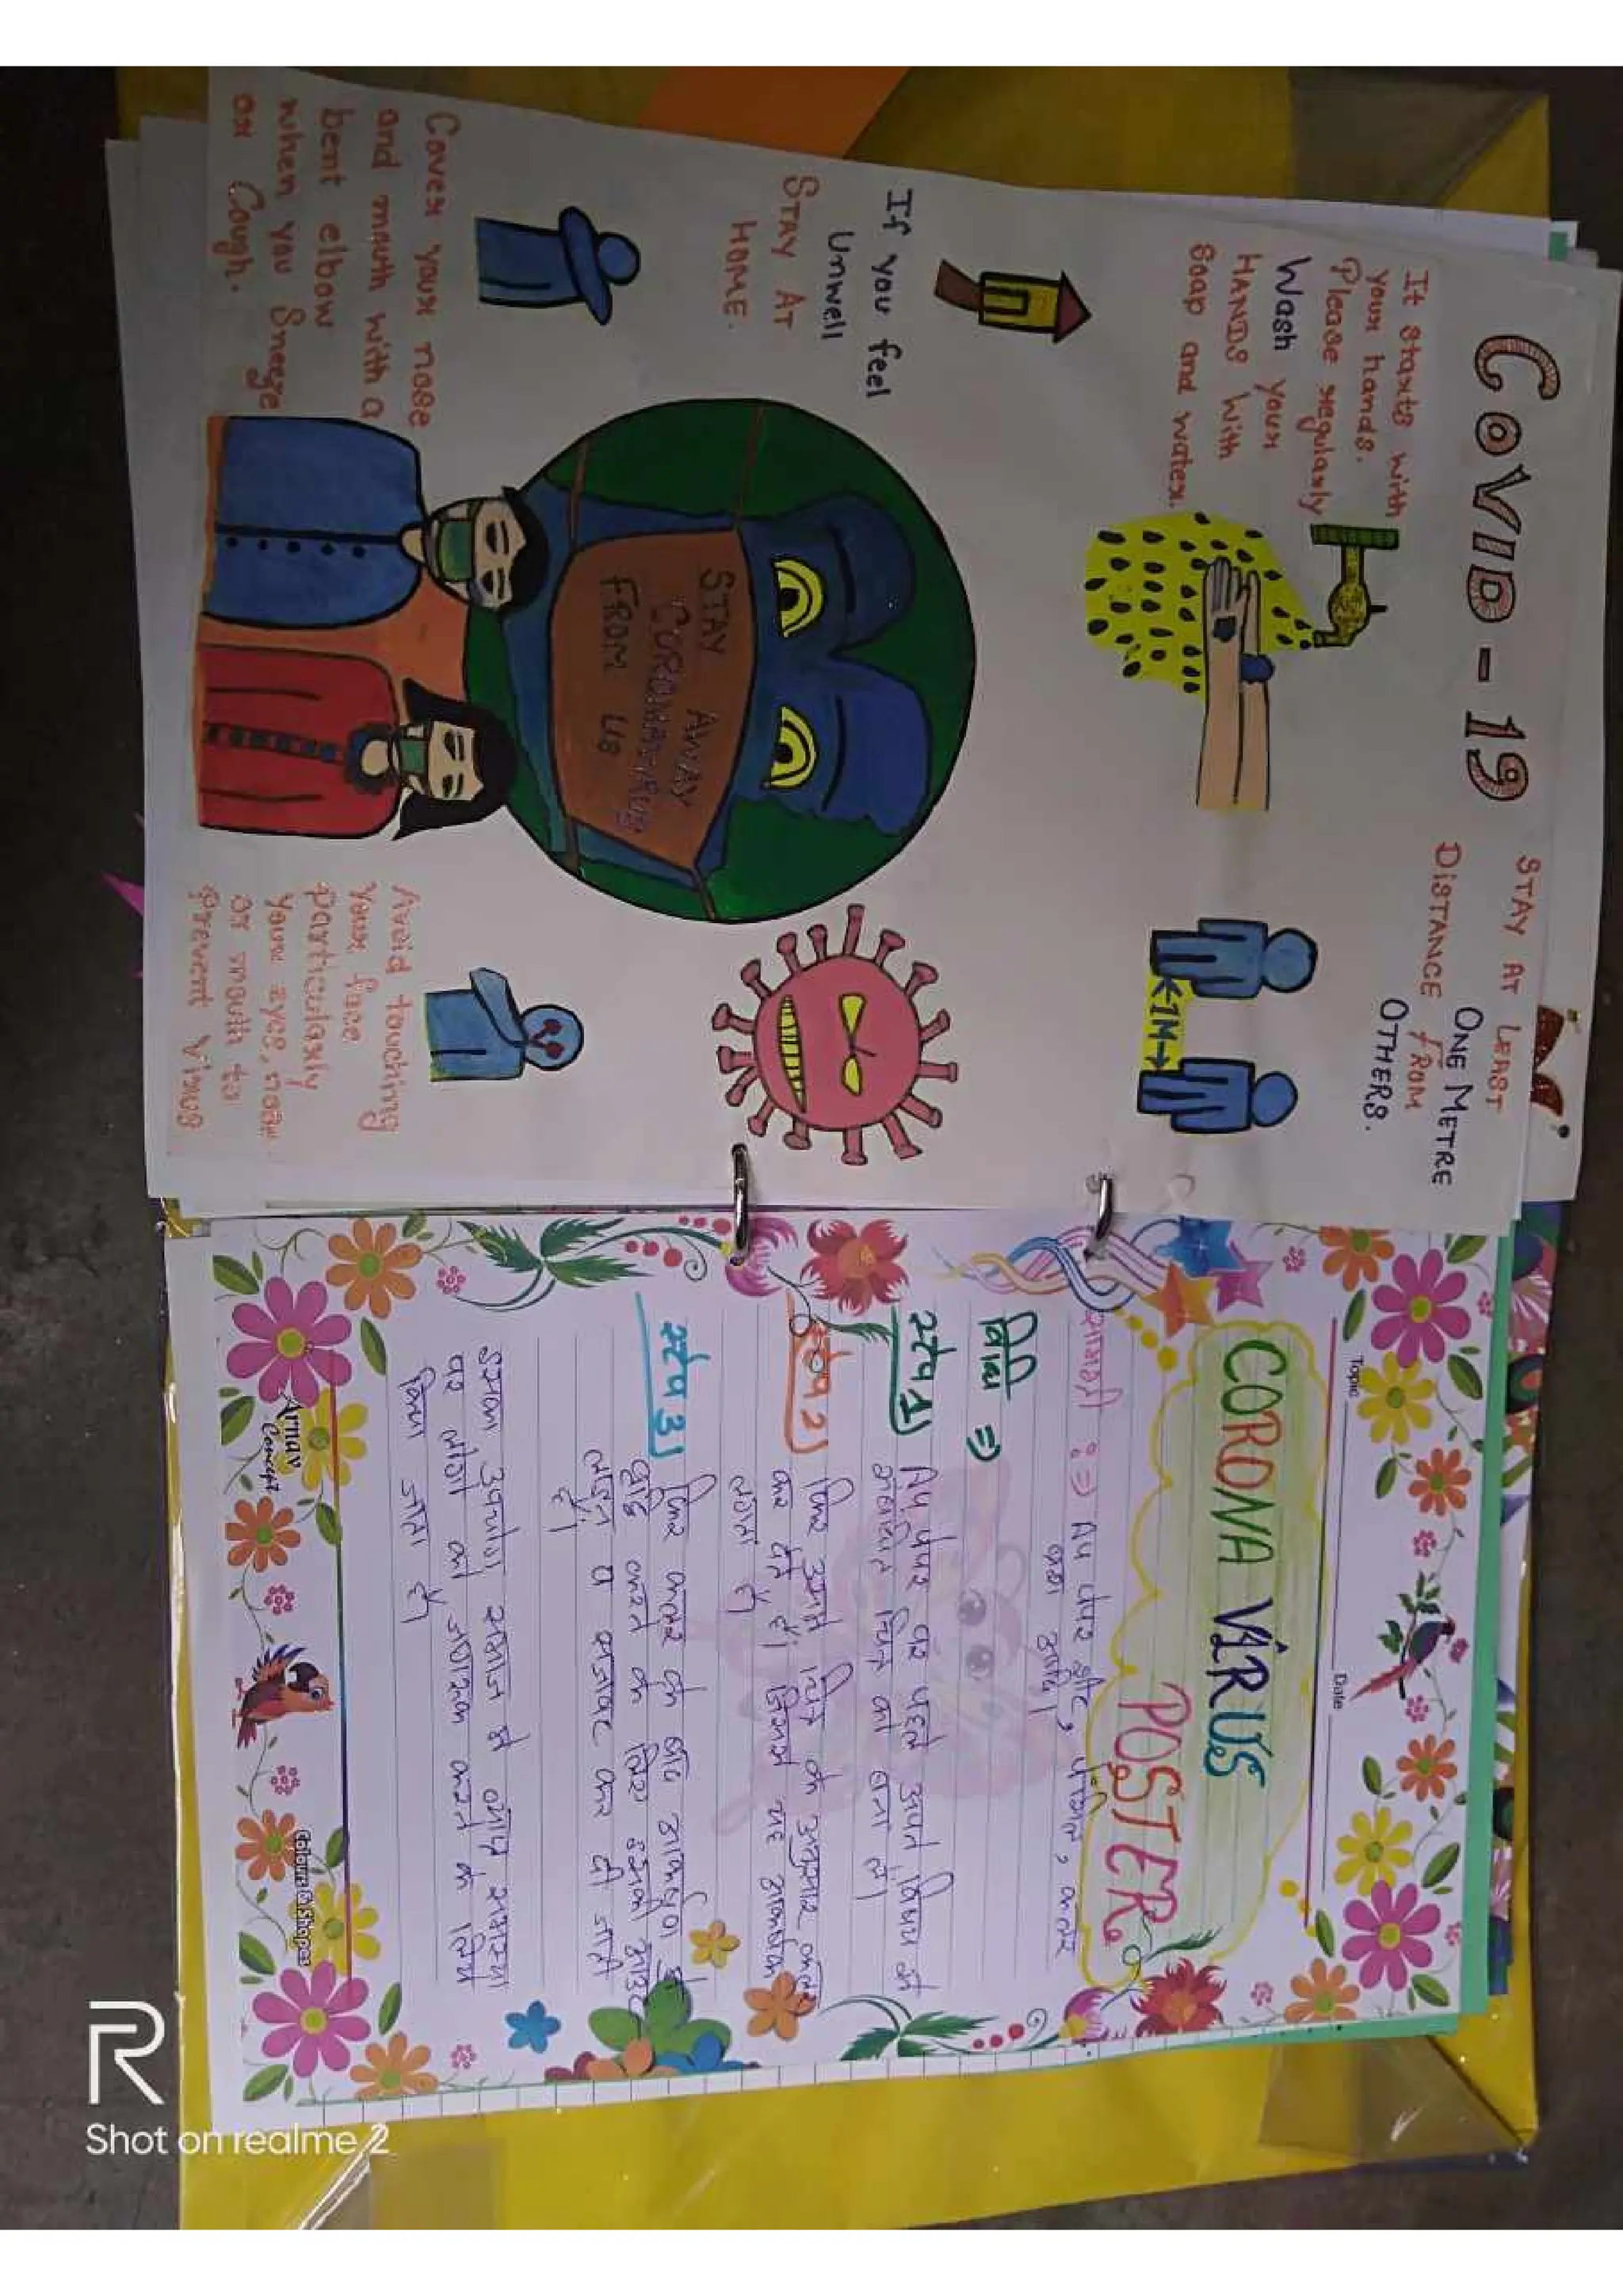 COVID-19
It starts with
your hands.
Please regularly
Wash your
HANDS With
Soap and water.
STAY AT LEAST
ONE METRE
DISTANCE FROM
OTHERS.
←1M→
If you feel
Unwell
STAY AT
HOME.
STAY AWAY
CORONAVIRUS
FROM US
Cover your nose
and mouth with a
bent elbow
when you Sneeze
or Cough.
Avoid touching
your face
particularly
your eyes, nose
or mouth to
prevent Virus
Topic
Date
CORONA VIRUS
POSTER
सामग्री :⇒ A4 पेपर शीट, पेंसिल, कलर
विधि ⇒
स्टेप 1) A4 पेपर पर पहले अपने विषय से
सम्बंधित चित्र को बना लें।
स्टेप 2) फिर उसमें चित्र के अनुसार कलर
कर देते हैं। जिससे यह आकर्षक
लगता है।
स्टेप 3) फिर कलर के बाद आकर्षण
करने के लिए इसकी आउट
लाइन व सजावट कर दी जाती
है।
इसका उपयोग समाज में लोगों
पर लोगों को जागरूक करने के लिए
किया जाता है।
Arnav
Concept
Colours & Shapes
R
Shot on realme 2